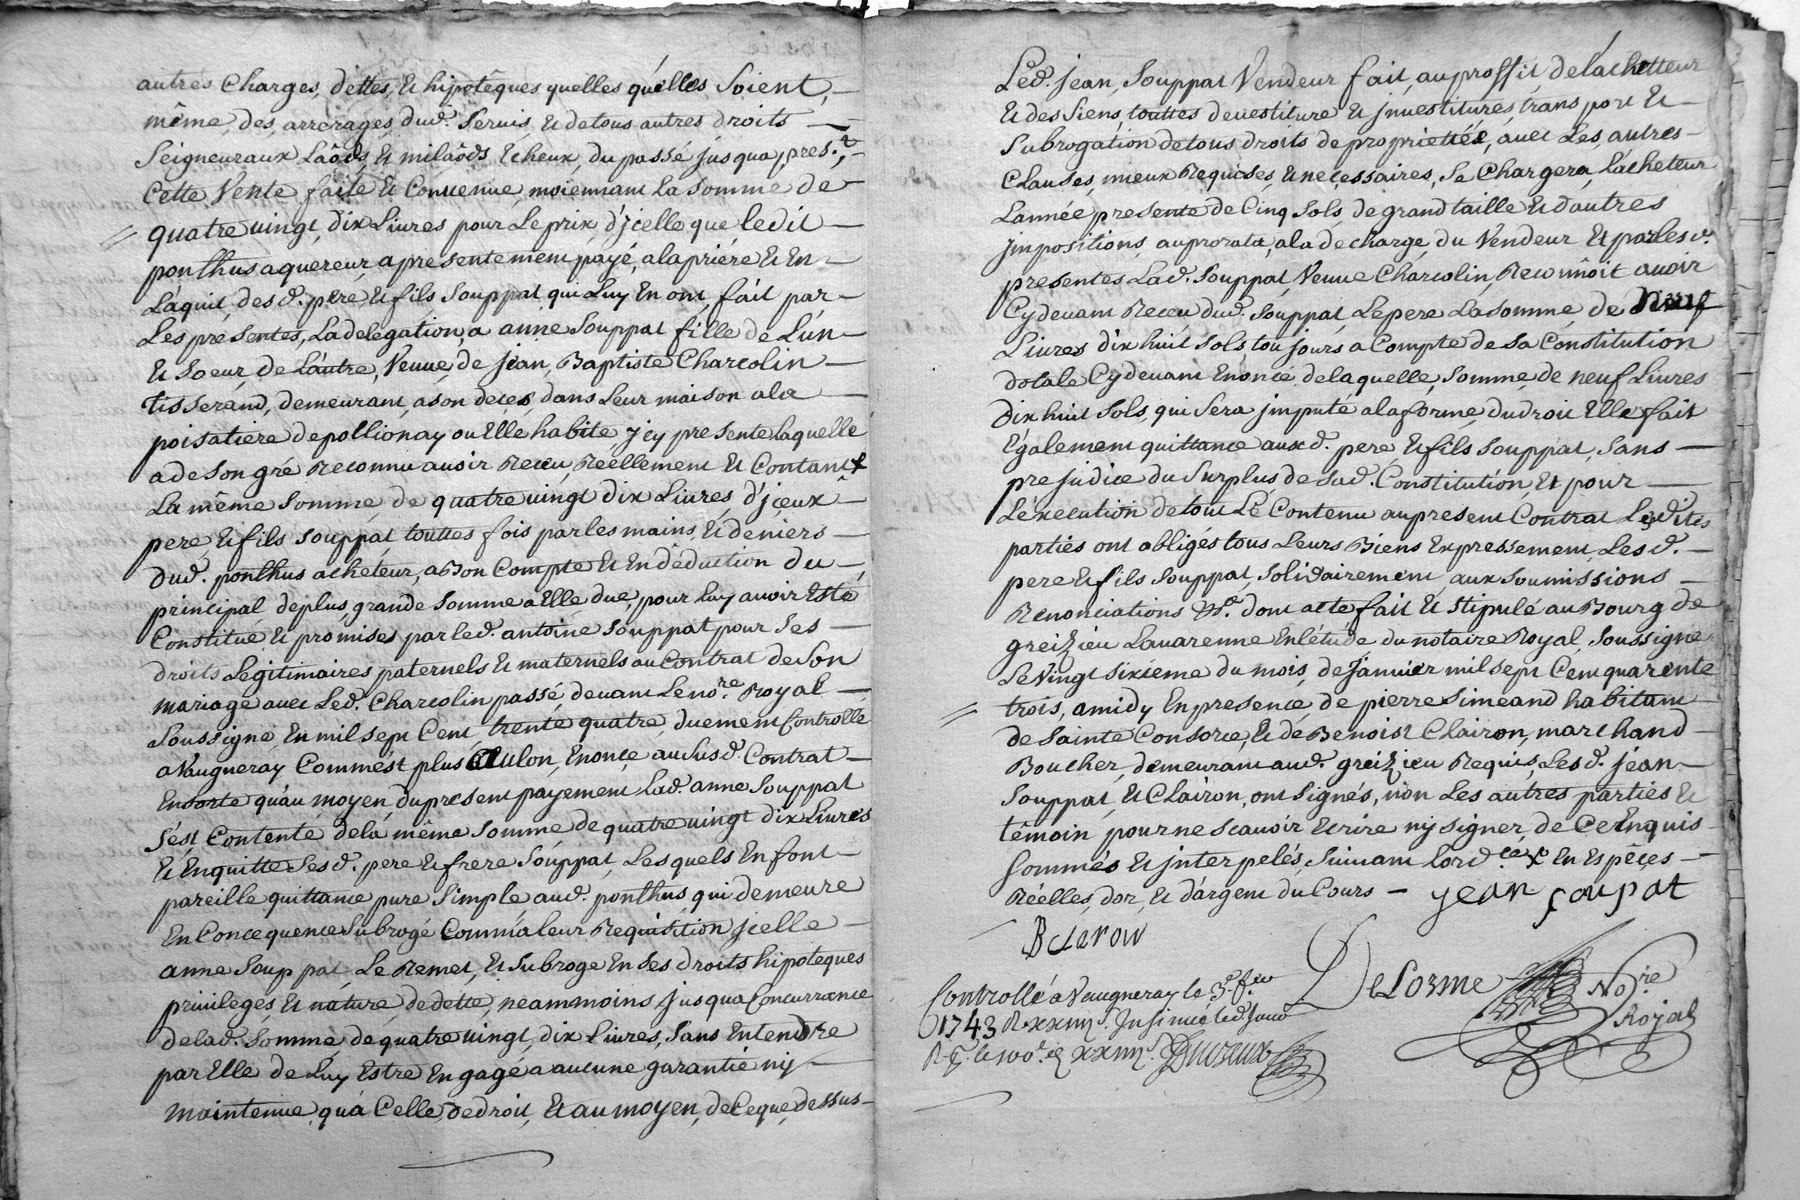 autres Charges, dettes, et hipotêques quelles qu'elles Soient,
même, des, arrerages dud. Servis, et de tous autres droits
Seigneuraux Laôds, et milaôds Echeux, du passé jusqua, pres.t,
Cette Vente faite et Convenue, moiennant La somme de
quatre vingt, dix Livres pour Le prix, d'jcelle que ledit
ponthus aquereur a presentement payé, a la priére et En
L'aquit, des d. pere et fils Souppat qui Luy En ont, fait par
Les présentes, La delegation, a anne Souppat fille de L'un
et Soeur, de L'autre, Veuve, de jean, Baptiste Charcolin
tisserand, demeurant, a son deces, dans Leur maison a la
poisatiere de pollionay ou Elle habite, jcy presente laquelle
a de son gré Reconnu avoir Receu, Réellement et Contant
La même somme, de quatre vingt dix Livres, d'jceux
pere, et fils Souppat touttes fois par les mains, et deniers
dud. ponthus acheteur, a Bon Compte et En déduction du
principal de plus grande somme a Elle due, pour Luy avoir Esté
Constitué et promises par led. antoine Souppat pour Ses
droits Legitimaires paternels et maternels au Contrat de Son
mariage avec Led. Charcolin passé, devant Le no.re Royal
Soussigne En mil sept Cent trente quatre, duement Controlle
a Vaugneray Comme'st plus au Lon, Enoncé au Susd. Contrat
En sorte qu'au moyen du present payement Lad. anne Souppat
s'est Contenté de la même Somme, de quatre vingt dix Livres
et En quitte Ses d. pere et frere Souppat, Les quels En font
pareille quittance pure Simple aud. ponthus qui demeure
En Concequence Subrogé Comm'a leur Requisition jcelle
anne Souppat Le Remet, et Subroge En Ses droits hipoteques
privileges, et nature, de dette, neammoins jusqua Concurrance
de lad. Somme de quatre vingt, dix Livres, Sans Entendre
par Elle de Luy Estre Engagé a aucune garantie ny
maintenue, qu'a Celle, de droit, et au moyen, de Ce que, dessus
Led. jean, Souppat Vendeur fait, au proffit, de L'achetteur
et des Siens, touttes devestiture et jnvestitures, transport et
Subrogation de tous droits de proprietté, avec Les, autres
Clauses, mieux Requises, et neçessaires, Se Chargera, L'acheteur
L'année presente de Cinq Sols, de grand taille et d'autres
jmpositions, au prorata, a la decharge du Vendeur Et par les d.
presentes Lad. Souppat, Veuve Charcolin, Reconnoit avoir
Cy devant Receu dud. Souppat, Le pere La somme, de neuf
Livres dix huit Sols toujours a Compte de Sa Constitution
dotale Cy devant Enoncé, de laquelle, Somme, de neuf Livres
dix huit Sols, qui Sera jmputé a la forme du droit Elle fait
Egalement quittance aux d. pere et fils Souppat, Sans
prejudice du Surplus de Sad. Constitution, et pour
L'éxecution de tout Le Contenu au present Contrat Lesdites
parties ont obligés tous Leurs Biens Expressement, Les d.
pere et fils Souppat Solidairement, aux Soumissions
Renonciations &c. dont acte fait et Stipulé au Bourg de
greizieu Lavarenne En l'étude du notaire Royal, Soussigne
Le Vingt Sixieme du mois, de Janvier mil sept Cent quarente
trois, a midy En presence de pierre Simeand habitant
de Sainte Consorce, et de Benoist Clairon, marchand
Boucher, demeurant aud. greizieu Requis, Les d. jean
Souppat, et Clairon, ont Signés, non Les autres parties et
témoin pour ne Scavoir Ecrire ny signer, de Ce Enquis
Sommés et jnterpelés, Suivant L'ord.ce x En Espêces
Réelles, d'or, et d'argent du Cours — jean soupat
B claron
DeLorme No.re
Royal
Controllé a Vaugneray le 3.e
1743